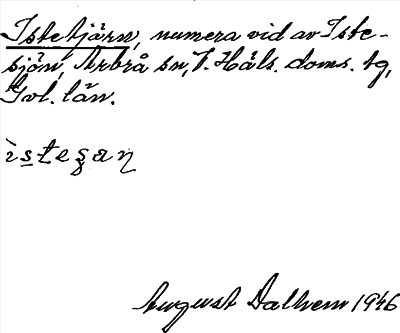 Istetjärn, numera vid av Iste-
sjön, Arbrå sn, V. Häls. doms. tg,
Gvl. län.
August Dalhem 1946